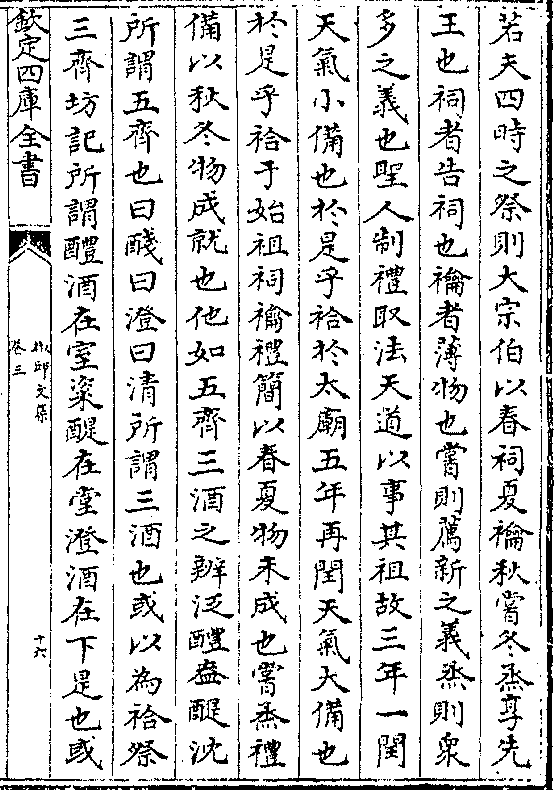 若夫四時之祭則大宗伯以春祠夏禴秋嘗冬烝享先
王也祠者告祠也禴者薄物也嘗則薦新之義烝則衆
多之義也聖人制禮取法天道以事其祖故三年一閏
天氣小備也於是乎祫於太廟五年再閏天氣大備也
於是乎祫于始祖祠禴禮簡以春夏物未成也嘗烝禮
備以秋冬物成就也他如五齊三酒之辨泛醴盎醍沈
所謂五齊也曰醆曰澄曰清所謂三酒也或以為祫祭
三齊坊記所謂醴酒在室粢醍在堂澄酒在下是也或
欽定四庫全書
卷三
十六